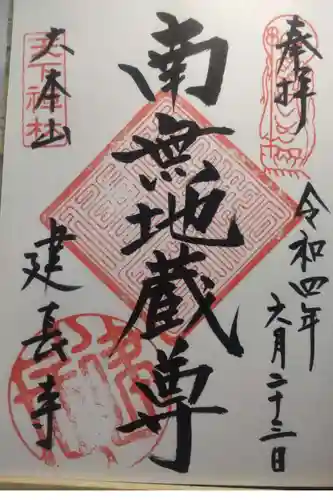 奉拝
令和四年
六月二十三日
南無地蔵尊
大本山
建長寺
天下禅林